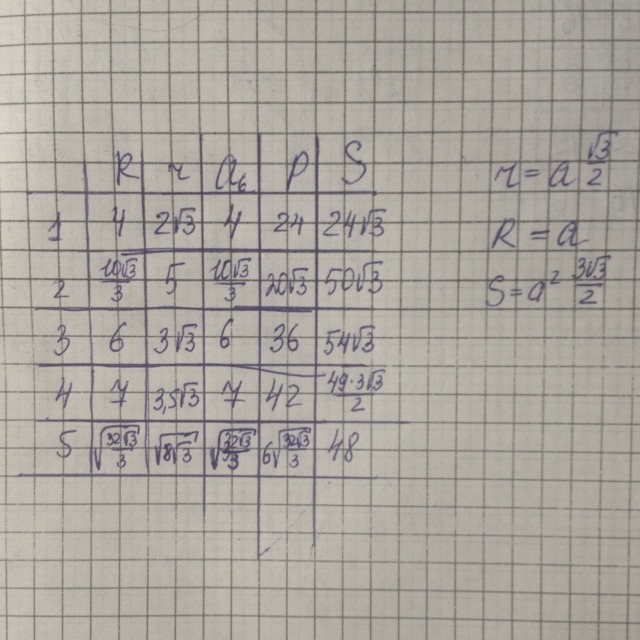 R r a₆ P S
1 4 2√3 4 24 24√3
2 10√3/3 5 10√3/3 20√3 50√3
3 6 3√3 6 36 54√3
4 7 3,5√3 7 42 49·3√3/2
5 √(32√3/3) √(8√3) √(32√3/3) 6√(32√3/3) 48
r = a √3/2
R = a
S = a² 3√3/2